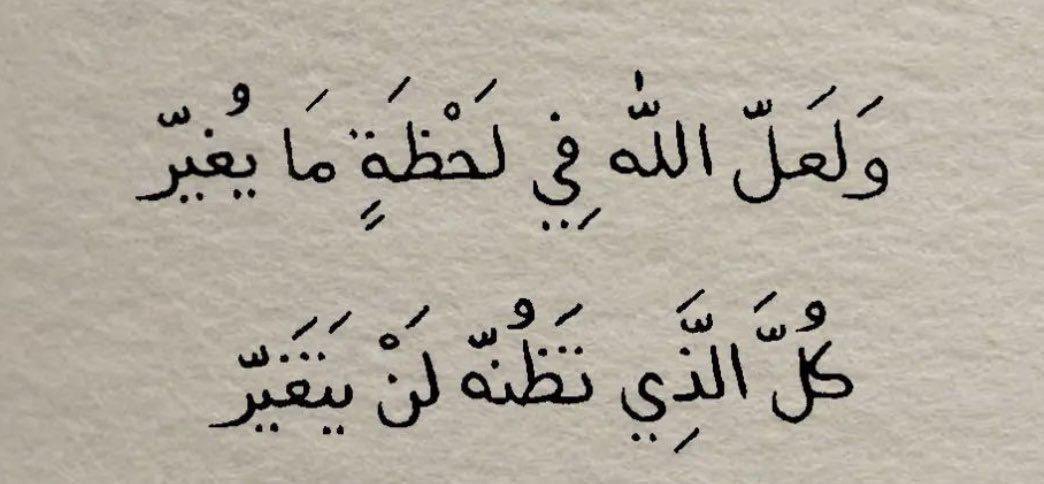 وَلَعَلّ اللّٰه فِي لَحْظَةٍ مَا يُغيرّ
كُلَّ الَّذِي تَظُنهّ لَنْ يَتَغَيرّ